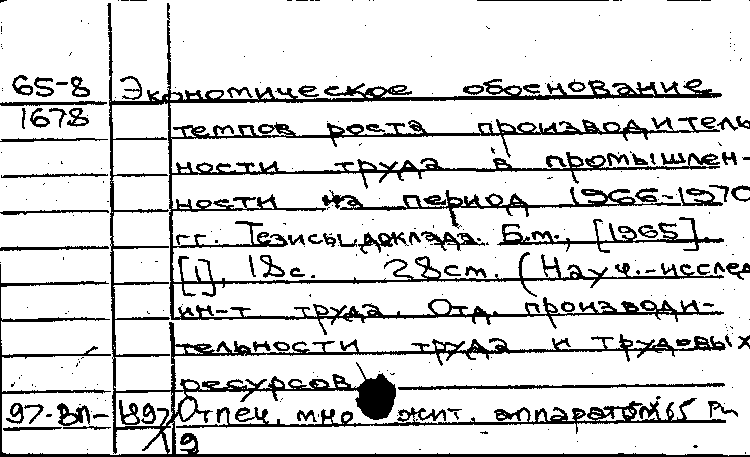 65-8 Экономическое обоснование
1678 темпов роста производитель
ности труда в промышлен-
ности на период 1966-1970
гг. Тезисы доклада. Б.м., [1965].
[1], 18с. 28см. (Науч.-исслед
ин-т труда. Отд. производи-
тельности труда и трудовых
ресурсов
97-ВП- 1897 Отпеч. множит. аппаратом 65
9